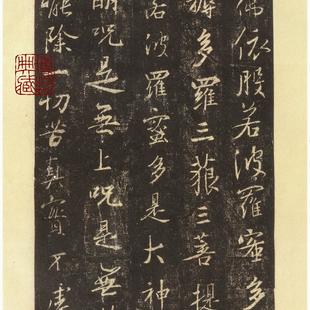 佛依般若波羅蜜多
耨多羅三藐三菩提
若波羅蜜多是大神
明呪是無上呪是無
能除一切苦真實不虛